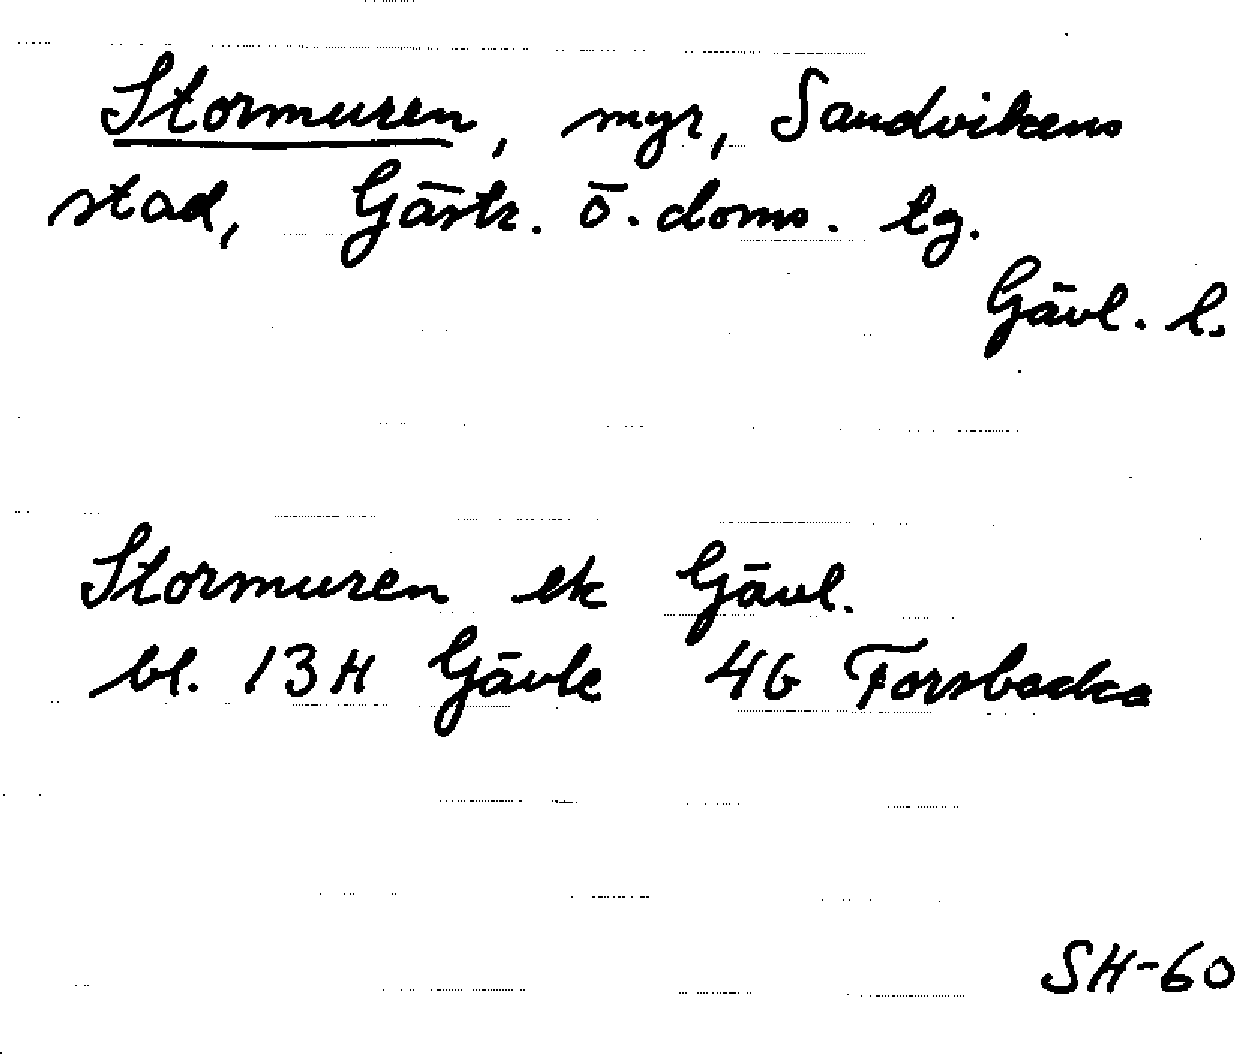 Stormuren, myr, Sandvikens
stad, Gästr. ö. doms. tg.
Gävl. l.
Stormuren ek Gävl.
bl. 13H Gävle 4G Forsbacka
SH-60